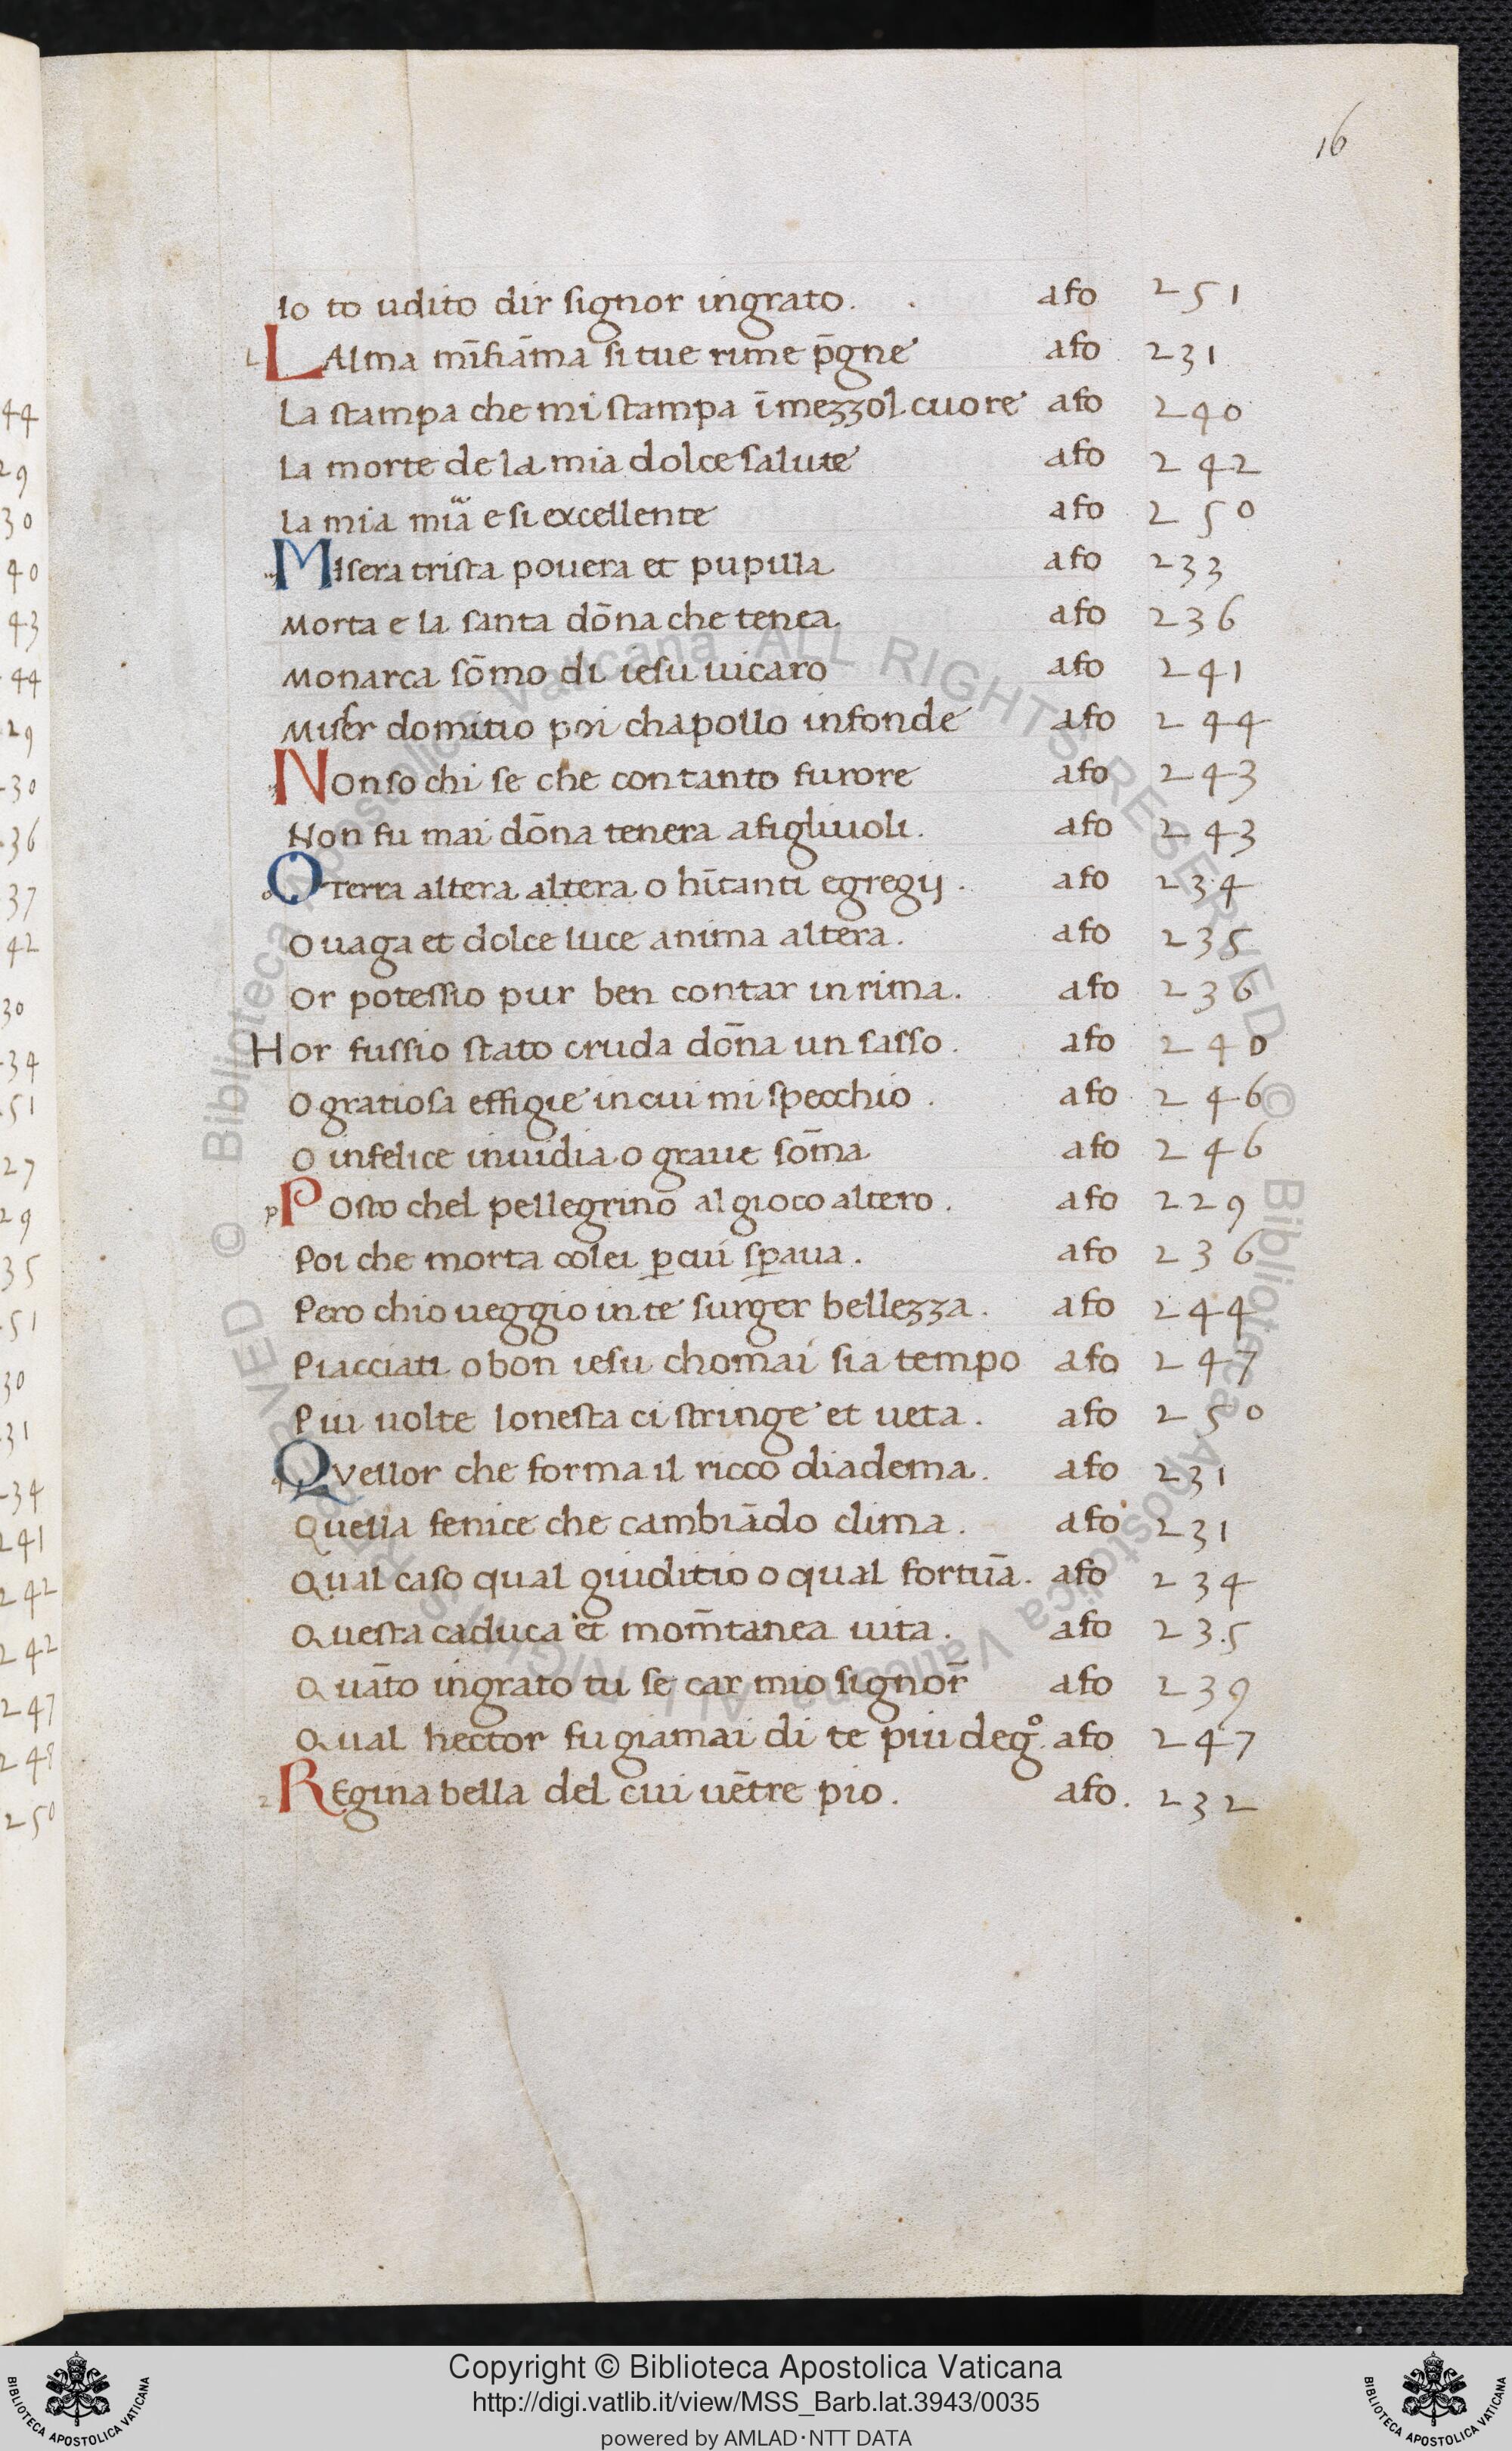 16
Io to udito dir signor ingrato. afo 251
LAlma m̄ fiāma si tue rime p̄gne afo 231
La stampa che mi stampa ī mezzol cuore afo 240
La morte de la mia dolce salute afo 242
La mia mia e si excellente afo 250
Misera trista pouera et pupilla afo 233
Morta e la santa dōna che tenea afo 236
Monarca sōmo di iesu uicaro afo 241
Miser domitio poi chapollo infonde afo 244
Non so chi se che con tanto furore afo 243
Non fu mai dōna tenera a figliuoli. afo 243
O terra altera altera o hītanti egregij. afo 234
O uaga et dolce luce anima altera. afo 235
Or potessio pur ben contar in rima. afo 236
Hor fussio stato cruda dōna un sasso. afo 240
O gratiosa effigie in cui mi specchio. afo 246
O infelice inuidia o graue sōma afo 246
Posto chel pellegrino al gioco altero. afo 229
Poi che morta colei ꝑ cui sꝑaua. afo 236
Pero chio ueggio in te surger bellezza. afo 244
Piacciati o bon iesu chomai sia tempo afo 247
Piu uolte lonesta ci stringe et ueta. afo 250
Quellor che forma il ricco diadema. afo 231
Quella fenice che cambiādo clima. afo 231
Qual caso qual giuditio o qual fortūa. afo 234
Questa caduca et mom̄tanea uita. afo 235
Quāto ingrato tu se car mio signor̄ afo 239
Qual hector fu giamai di te piu degº. afo 247
REgina bella del cui uētre pio. afo. 232
Copyright © Biblioteca Apostolica Vaticana
http://digi.vatlib.it/view/MSS_Barb.lat.3943/0035
powered by AMLAD·NTT DATA
BIBLIOTECA APOSTOLICA VATICANA
BIBLIOTECA APOSTOLICA VATICANA